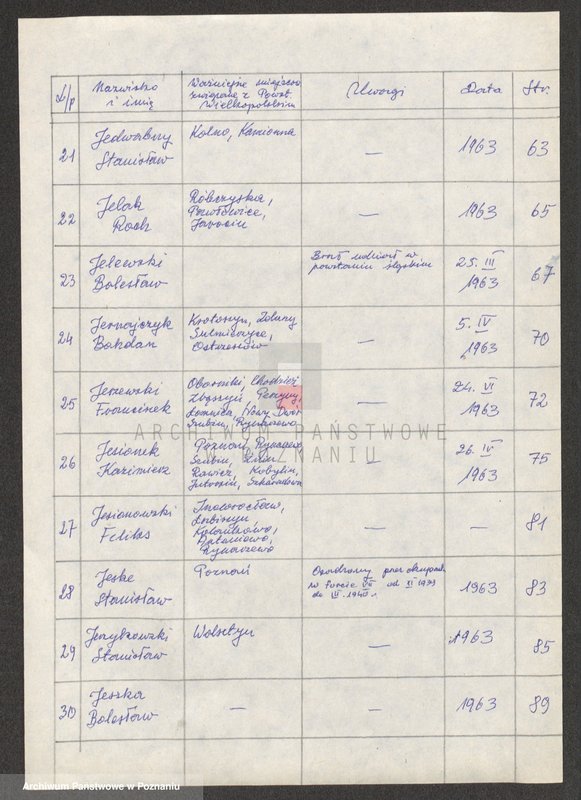 L/p Nazwisko i imię Ważniejsze miejscow. związane z Powst. Wielkopolskim Uwagi Data Str.
21 Jedwabny Stanisław Kolno, Kamionna — 1963 63
22 Jelak Roch Pawłowice, Jarocin — 1963 65
23 Jelewski Bolesław Brał udział w powstaniu śląskim 25. III 1963 67
24 Bohdan Krotoszyn, Zduny Sulmierzyce, Ostrzeszów — 5. IV 1963 70
25 Jerzewski Franciszek Oborniki, Chodzież Zbąszyń, Łomnica, Nowy Dwór Szubin, Rynarzewo — 24. VI 1963 72
26 Jesionek Kazimierz Poznań, Rynarzewo Szubin, Rawicz, Kobylin, Jutrosin, Szkaradowo — 26. IV 1963 75
27 Jesionowski Feliks Inowrocław, Łabiszyn Rynarzewo — — 81
28 Jeske Stanisław Poznań Osadzony przez okupanta w Forcie VII od XI 1939 do III. 1940 r. 1963 83
29 Jeszkowski Stanisław Wolsztyn — 1963 85
30 Jeszka Bolesław — — 1963 89
ARCHIWUM PAŃSTWOWE
W POZNANIU
Archiwum Państwowe w Poznaniu